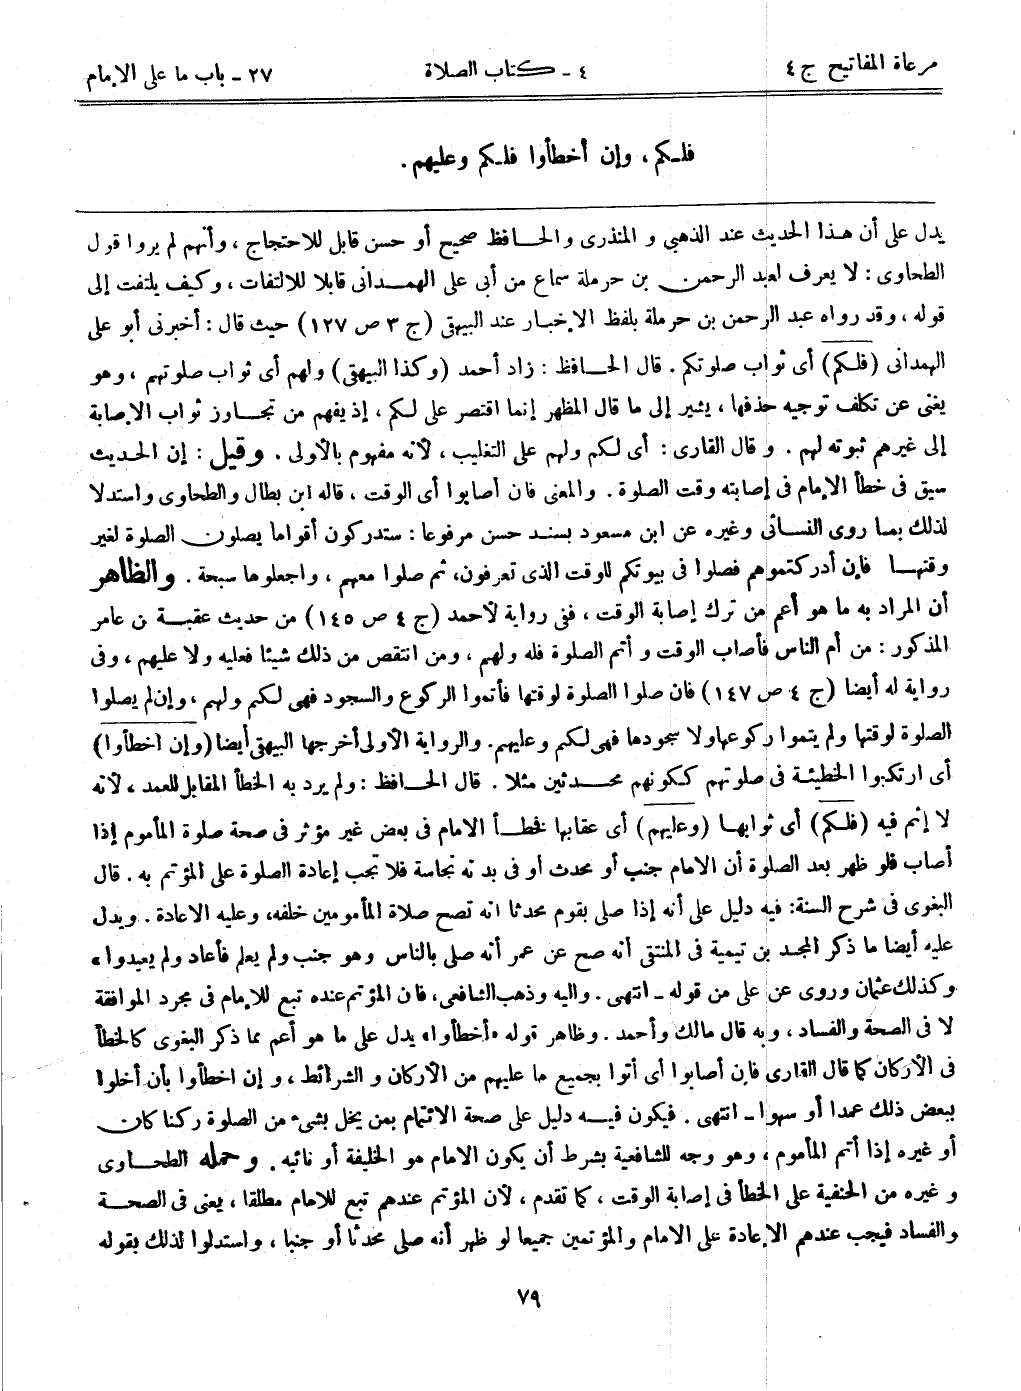 مرعاة المفاتيح ج ٤
٤ - كتاب الصلاة
٢٧ - باب ما على الإمام
فلكم، وإن أخطأوا فلكم وعليهم.
يدل على أن هذا الحديث عند الذهبي و المنذرى والحافظ صحيح أو حسن قابل للاحتجاج، وأنهم لم يروا قول
الطحاوى: لا يعرف لعبد الرحمن بن حرملة سماع من أبى على الهمدانى قابلا للالتفات، وكيف يلتفت إلى
قوله، وقد رواه عبد الرحمن بن حرملة بلفظ الإخبار عند البيهقى (ج ٣ ص ١٢٧) حيث قال: أخبرنى أبو على
الهمدانى (فلكم) أى ثواب صلوتكم. قال الحافظ: زاد أحمد (وكذا البيهقى) ولهم أى ثواب صلوتهم، وهو
يغنى عن تكلف توجيه حذفها، يشير إلى ما قال المظهر إنما اقتصر على لكم، إذ يفهم من تجاوز ثواب الإصابة
إلى غيرهم ثبوته لهم. و قال القارى: أى لكم ولهم على التغليب، لأنه مفهوم بالأولى. وقيل: إن الحديث
سيق فى خطأ الإمام فى إصابته وقت الصلوة. والمعنى فان أصابوا أى الوقت، قاله ابن بطال والطحاوى واستدلا
لذلك بما روى النسائى وغيره عن ابن مسعود بسند حسن مرفوعا: ستدركون أقواما يصلون الصلوة لغير
وقتها فإن أدركتموهم فصلوا فى بيوتكم للوقت الذى تعرفون، ثم صلوا معهم، واجعلوها سبحة. والظاهر
أن المراد به ما هو أعم من ترك إصابة الوقت، ففى رواية لأحمد (ج ٤ ص ١٤٥) من حديث عقبة بن عامر
المذكور: من أم الناس فأصاب الوقت و أتم الصلوة فله ولهم، ومن انتقص من ذلك شيئا فعليه ولا عليهم، وفى
رواية له أيضا (ج ٤ ص ١٤٧) فان صلوا الصلوة لوقتها فأتموا الركوع والسجود فهى لكم ولهم، وإن لم يصلوا
الصلوة لوقتها ولم يتموا ركوعها ولا سجودها فهى لكم وعليهم. والرواية الأولى أخرجها البيهقى أيضا (وإن أخطأوا)
أى ارتكبوا الخطيئة فى صلوتهم ككونهم محدثين مثلا. قال الحافظ: ولم يرد به الخطأ المقابل للعمد، لأنه
لا إثم فيه (فلكم) أى ثوابها (وعليهم) أى عقابها فخطأ الامام فى بعض غير مؤثر فى صحة صلوة المأموم إذا
أصاب فلو ظهر بعد الصلوة أن الامام جنب أو محدث أو فى بدنه نجاسة فلا تجب إعادة الصلوة على المؤتم به. قال
البغوى فى شرح السنة: فيه دليل على أنه إذا صلى بقوم محدثا انه تصح صلاة المأمومين خلفه، وعليه الاعادة. ويدل
عليه أيضا ما ذكر المجد بن تيمية فى المنتقى أنه صح عن عمر أنه صلى بالناس وهو جنب ولم يعلم فأعاد ولم يعيدوا،
وكذلك عثمان وروى عن على من قوله - انتهى. واليه وذهب الشافعى، فان المؤتم عنده تبع للإمام فى مجرد الموافقة
لا فى الصحة والفساد، وبه قال مالك وأحمد. وظاهر قوله «أخطأوا» يدل على ما هو أعم مما ذكر البغوى كالخطأ
فى الأركان كما قال القارى فإن أصابوا أى أتوا بجميع ما عليهم من الأركان و الشرائط، و إن اخطأوا بأن أخلوا
ببعض ذلك عمدا أو سهوا - انتهى. فيكون فيه دليل على صحة الائتمام بمن يخل بشىء من الصلوة ركنا كان
أو غيره إذا أتم المأموم، وهو وجه للشافعية بشرط أن يكون الامام هو الخليفة أو نائبه. وحمله الطحاوى
و غيره من الحنفية على الخطأ فى إصابة الوقت، كما تقدم، لأن المؤتم عندهم تبع للامام مطلقا، يعنى فى الصحة
والفساد فيجب عندهم الإعادة على الامام والمؤتمين جميعا لو ظهر أنه صلى محدثا أو جنبا، واستدلوا لذلك بقوله
٧٩